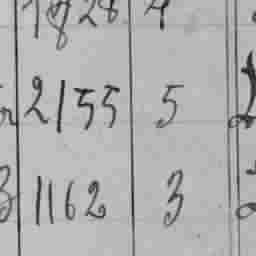 1828 4
2155 5
1162 3